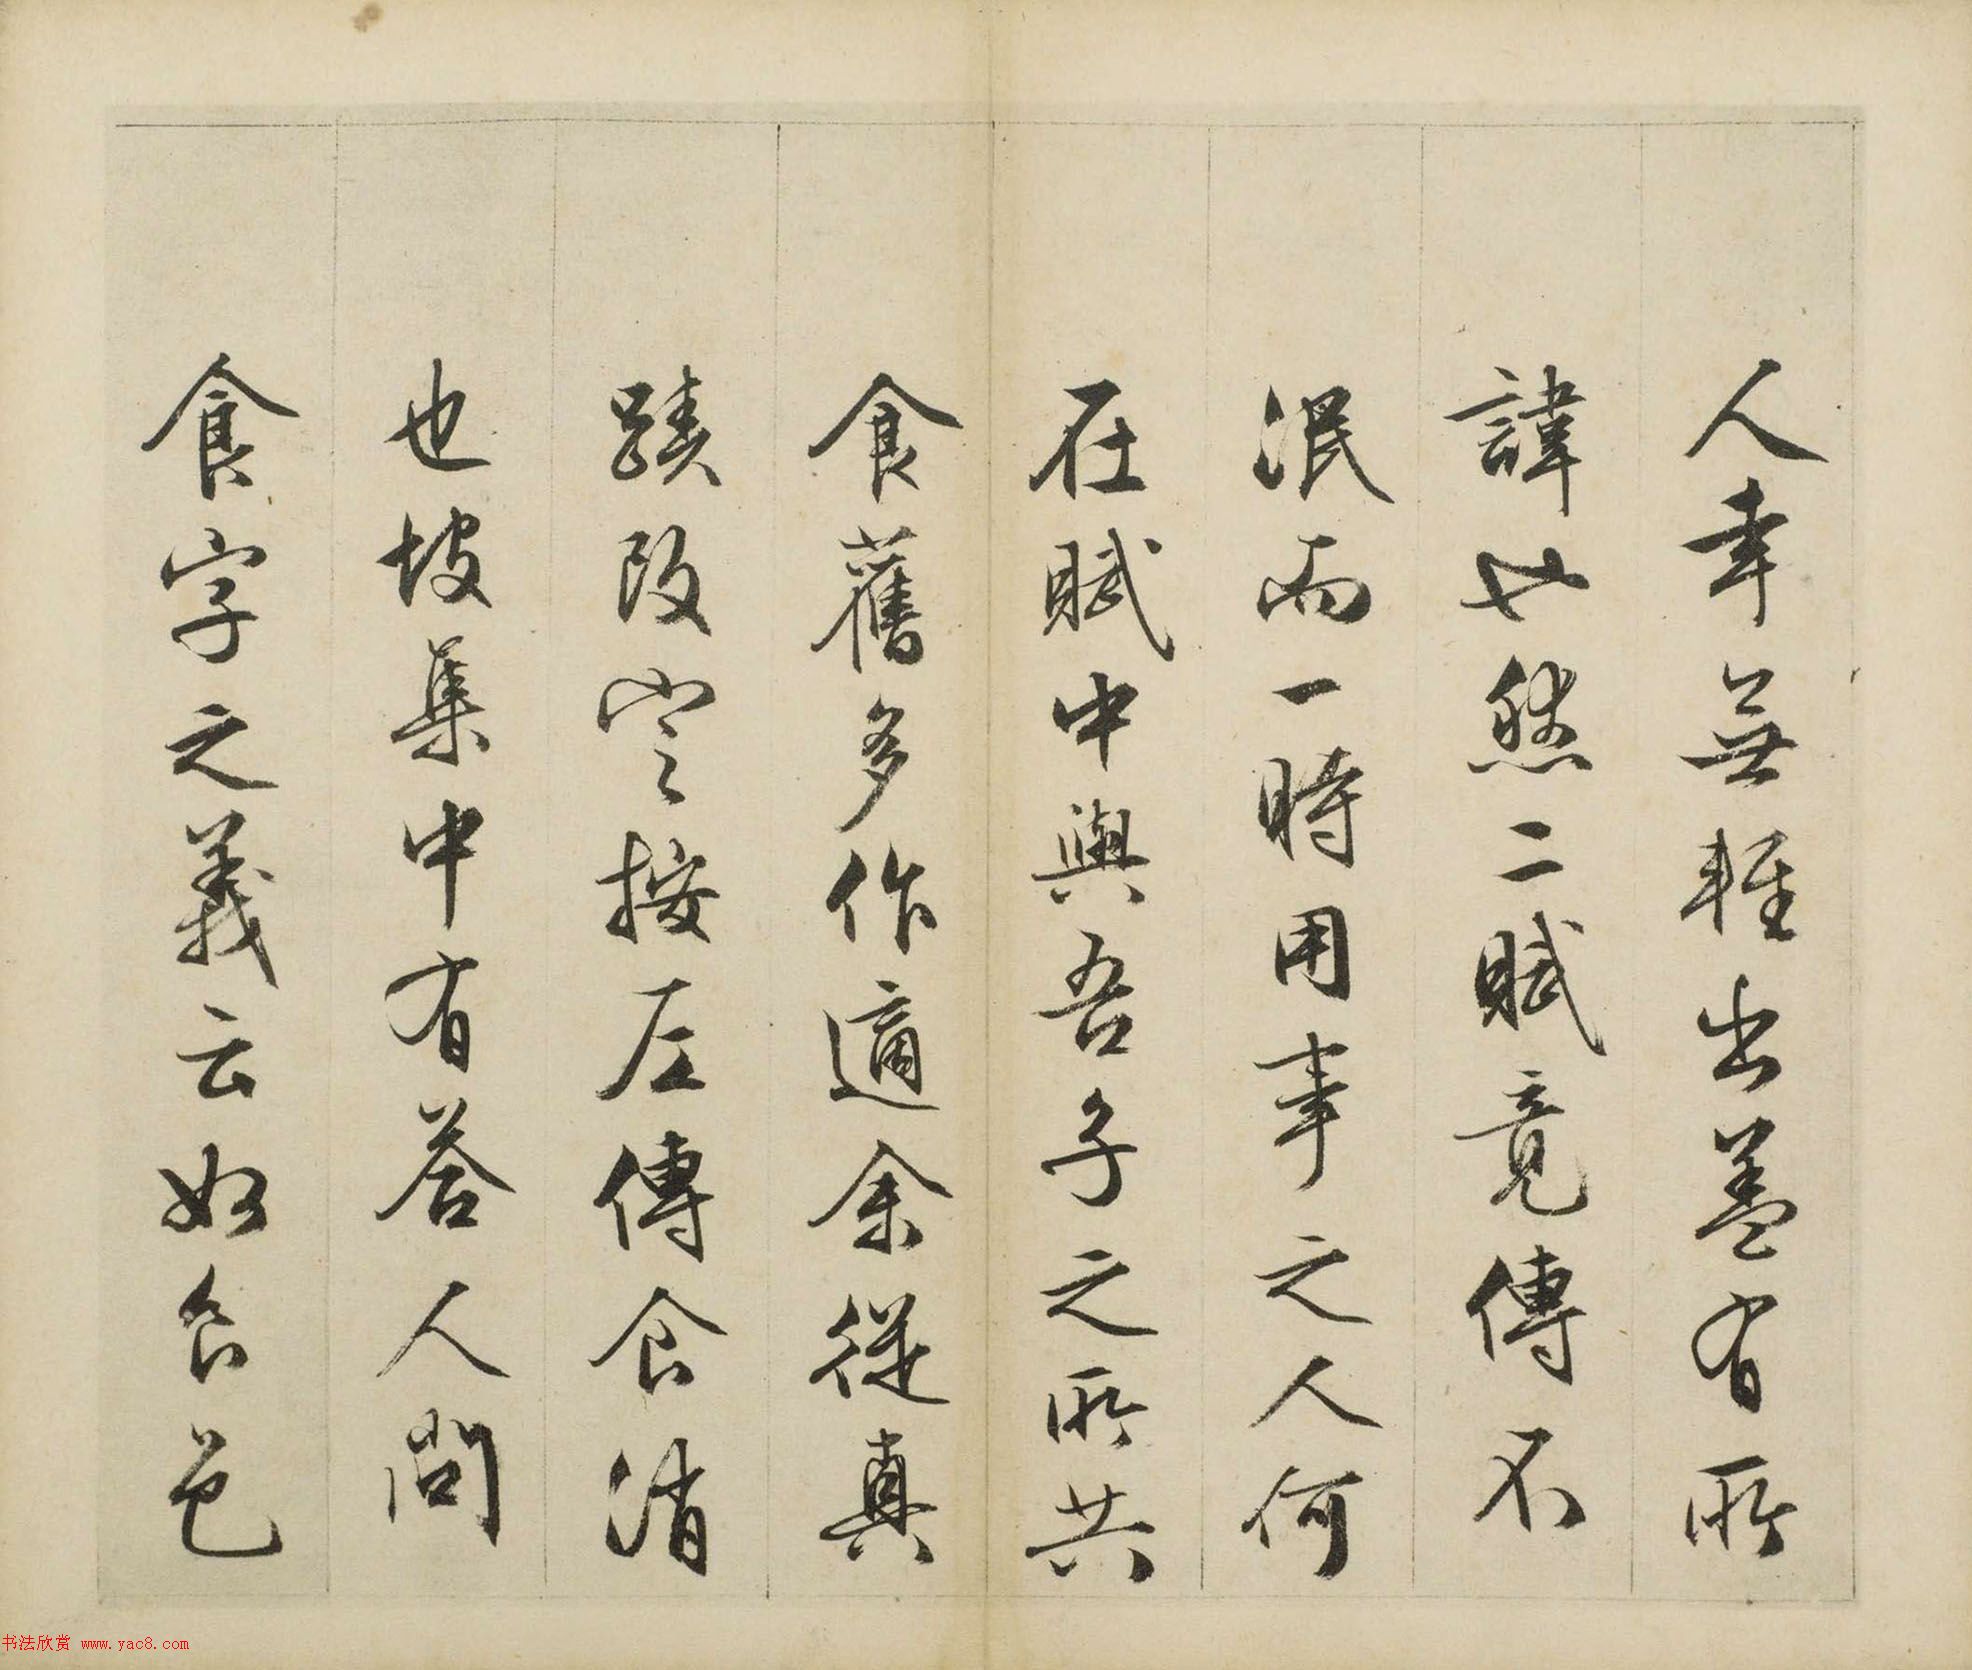 人幸無輕出蓋有所
諱也然二賦竟傳不
泯而一時用事之人何
在賦中與吾子之所共
食舊多作適余從真
蹟改定按左傳食消
也坡集中有答人問
食字之義云如食邑
书法欣赏 www.yac8.com